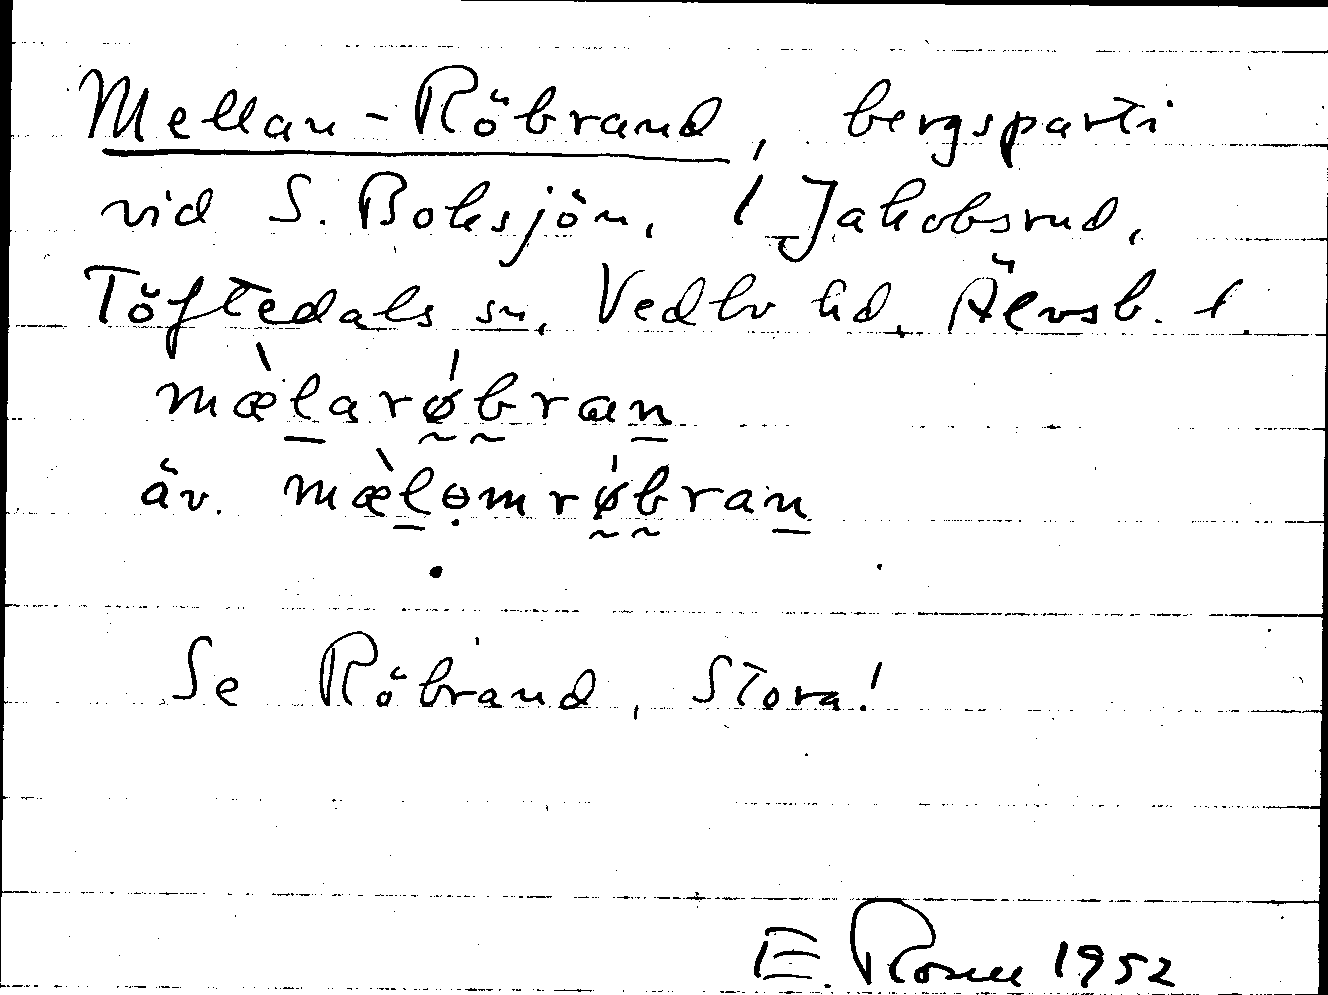 Mellan-Röbrand, bergsparti
vid S. Boksjön, 1 Jakobsrud,
Töftedals sn, Vedbo hd, Älvsb. l.
mæ̀l̲arǿ̰b̰ran̲
äv. mæ̀l̲ɵ̣mrǿ̰b̰ran̲
Se Röbrand, Stora!
E. Rosell 1952